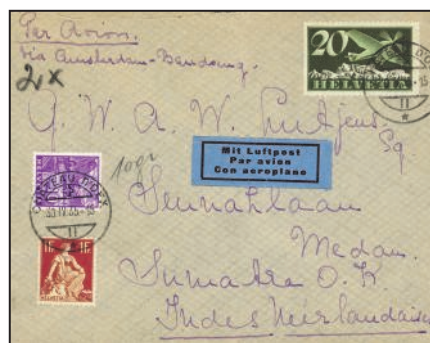 Par Avion.
via Amsterdam - Bandoeng.
2x
20
HELVETIA
G. W. A. W. Lutjens
Sq
Mit Luftpost
Par avion
Con aeroplano
10gr
II
1 Fr
HELVETIA
II
Medan.
Sumatra O. K.
Indes Neerlandaises